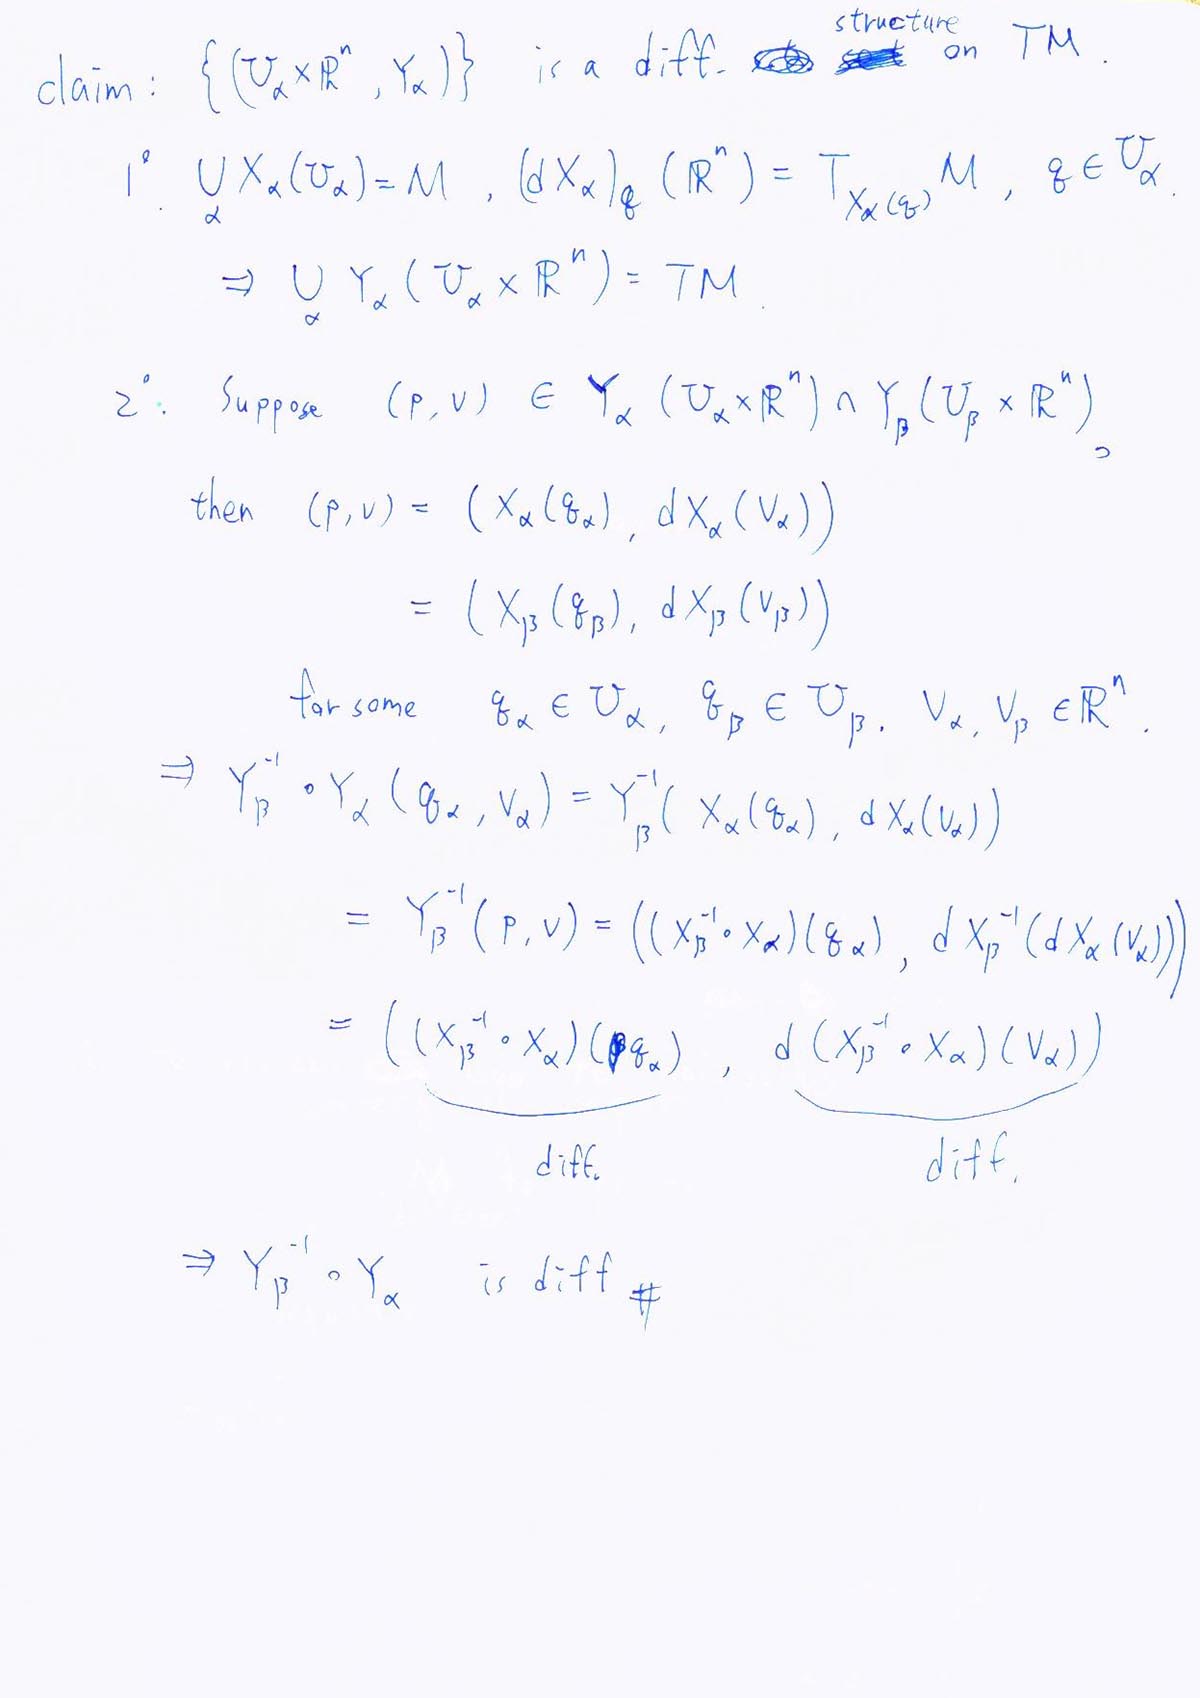 structure
claim: {(U_α × ℝⁿ, Y_α)} is a diff. on TM.
1°. ∪_α X_α(U_α) = M, (dX_α)_q (ℝⁿ) = T_{X_α(q)} M, q ∈ U_α.
⇒ ∪_α Y_α(U_α × ℝⁿ) = TM.
2°. Suppose (p, v) ∈ Y_α (U_α × ℝⁿ) ∩ Y_β (U_β × ℝⁿ),
then (p, v) = (X_α(q_α), dX_α(v_α))
= (X_β(q_β), dX_β(v_β))
for some q_α ∈ U_α, q_β ∈ U_β. v_α, v_β ∈ ℝⁿ.
⇒ Y_β⁻¹ ∘ Y_α (q_α, v_α) = Y_β⁻¹( X_α(q_α), dX_α(v_α))
= Y_β⁻¹(p, v) = ((X_β⁻¹ ∘ X_α)(q_α), dX_β⁻¹(dX_α(v_α)))
= ((X_β⁻¹ ∘ X_α)(q_α), d(X_β⁻¹ ∘ X_α)(v_α))
diff. diff.
⇒ Y_β⁻¹ ∘ Y_α is diff #